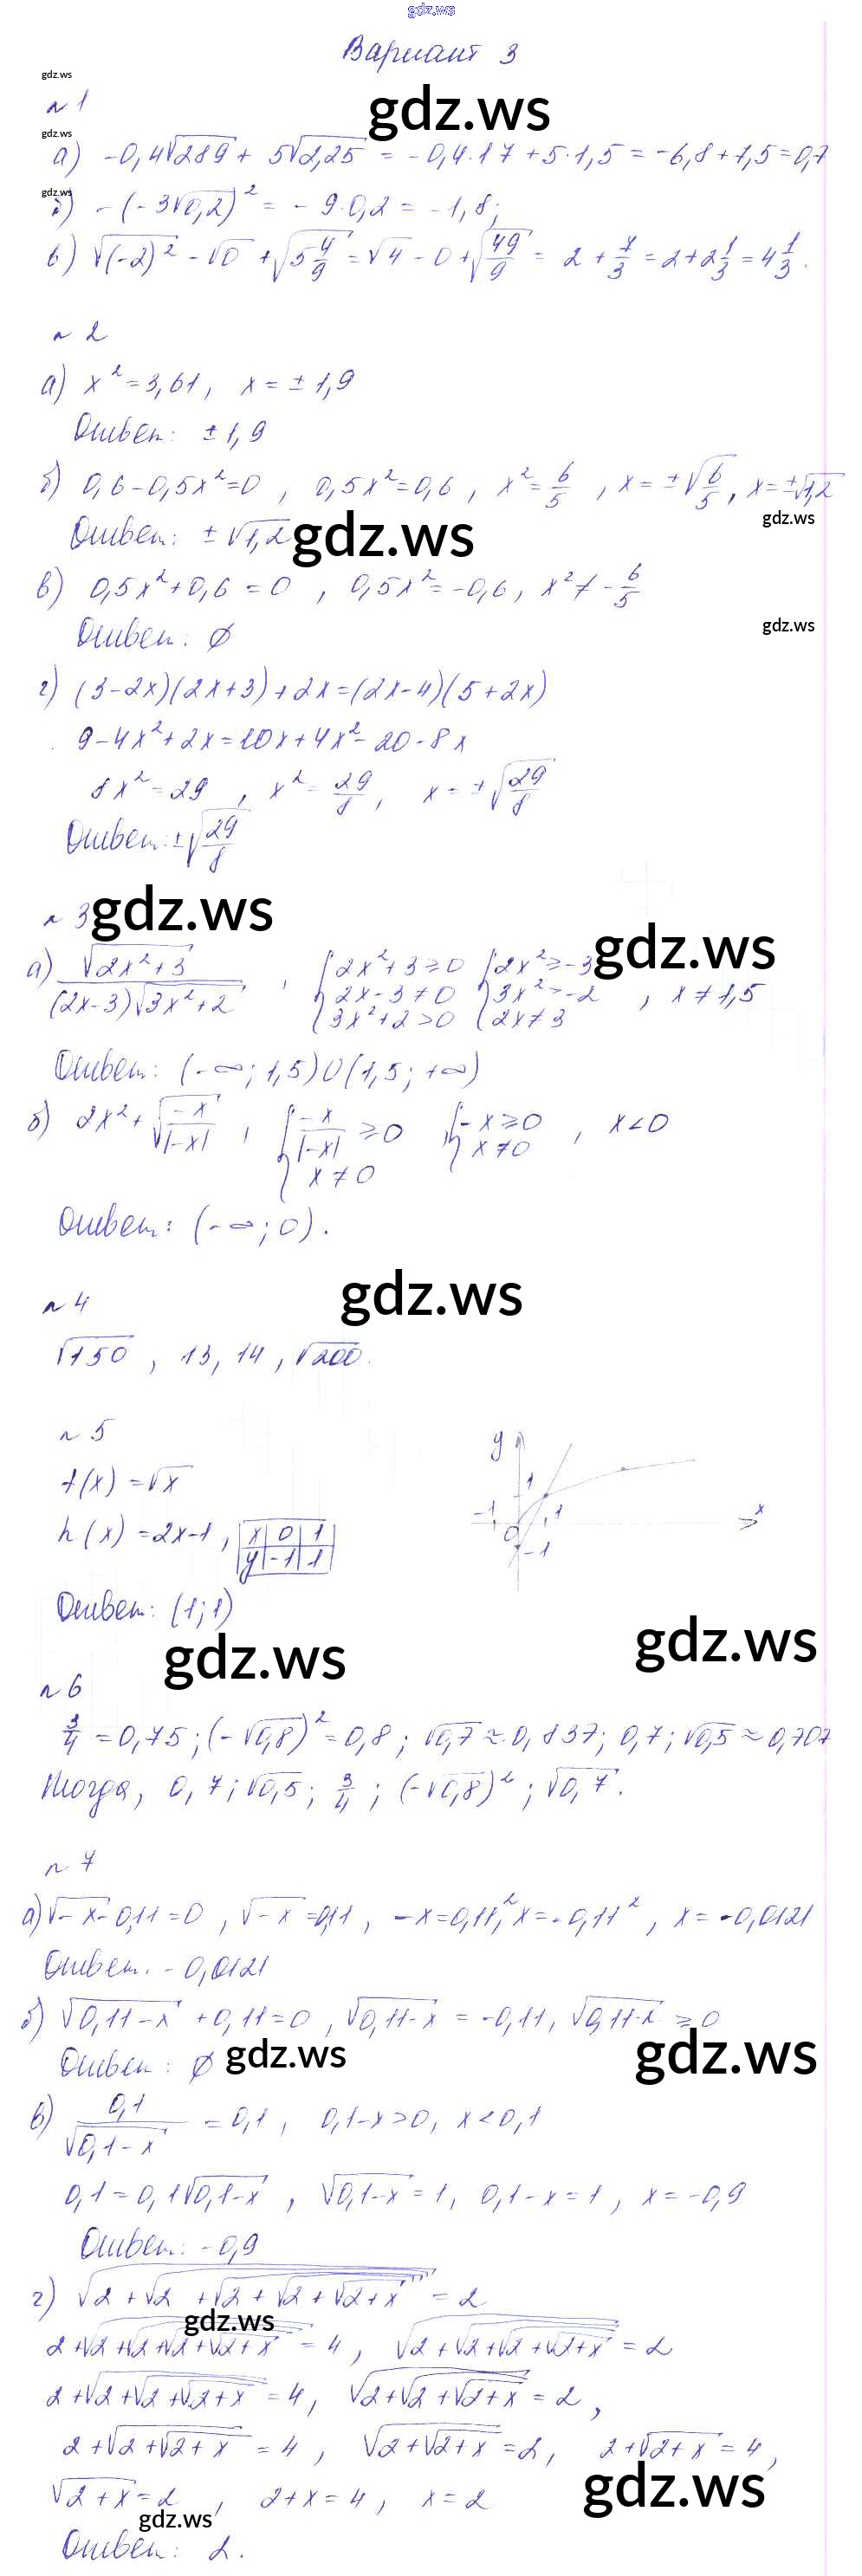 gdz.ws
Вариант 3
gdz.ws
n 1
gdz.ws
gdz.ws
а) -0,4√289 + 5√2,25 = -0,4·17 + 5·1,5 = -6,8 + 7,5 = 0,7
gdz.ws
б) -(-3√0,2)² = -9·0,2 = -1,8;
в) √(-2)² - √0 + √5 4/9 = √4 - 0 + √49/9 = 2 + 7/3 = 2 + 2 1/3 = 4 1/3.
n 2
а) x² = 3,61, x = ±1,9
Ответ: ±1,9
б) 0,6 - 0,5x² = 0, 0,5x² = 0,6, x² = 6/5, x = ±√6/5, x = ±√1,2
gdz.ws
Ответ: ±√1,2
gdz.ws
в) 0,5x² + 0,6 = 0, 0,5x² = -0,6, x² ≠ -6/5
Ответ: ∅
gdz.ws
г) (3-2x)(2x+3) + 2x = (2x-4)(5+2x)
9 - 4x² + 2x = 10x + 4x² - 20 - 8x
8x² = 29, x² = 29/8, x = ±√29/8
Ответ: ±√29/8
n 3
gdz.ws
gdz.ws
а) √2x²+3 / (2x-3)√3x²+2, { 2x²+3 ≥ 0 { 2x² ≥ -3
2x-3 ≠ 0 3x² > -2, x ≠ 1,5
3x²+2 > 0 2x ≠ 3
Ответ: (-∞; 1,5)U(1,5; +∞)
б) 2x² + √-x/|-x|, { -x/|-x| ≥ 0 { -x ≥ 0, x < 0
x ≠ 0 x ≠ 0
Ответ: (-∞; 0).
gdz.ws
n 4
√150, 13, 14, √200.
n 5
f(x) = √x
h(x) = 2x-1, x 0 1
y -1 1
y
1
-1 0 1 x
-1
Ответ: (1; 1)
gdz.ws
gdz.ws
n 6
3/4 = 0,75; (-√0,8)² = 0,8; √0,7 ≈ 0,837; 0,7; √0,5 ≈ 0,707
Тогда, 0,7; √0,5; 3/4; (-√0,8)²; √0,7.
n 7
а) √-x - 0,11 = 0, √-x = 0,11, -x = 0,11², x = -0,11², x = -0,0121
Ответ: -0,0121
б) √0,11-x + 0,11 = 0, √0,11-x = -0,11, √0,11-x ≥ 0
Ответ: ∅
gdz.ws
gdz.ws
в) 0,1/√0,1-x = 0,1, 0,1-x > 0, x < 0,1
0,1 = 0,1√0,1-x, √0,1-x = 1, 0,1-x = 1, x = -0,9
Ответ: -0,9
г) √2+√2+√2+√2+√2+x = 2
gdz.ws
2+√2+√2+√2+√2+x = 4, √2+√2+√2+√2+x = 2
2+√2+√2+√2+x = 4, √2+√2+√2+x = 2,
2+√2+√2+x = 4, √2+√2+x = 2, 2+√2+x = 4,
√2+x = 2, 2+x = 4, x = 2
gdz.ws
gdz.ws
Ответ: 2.